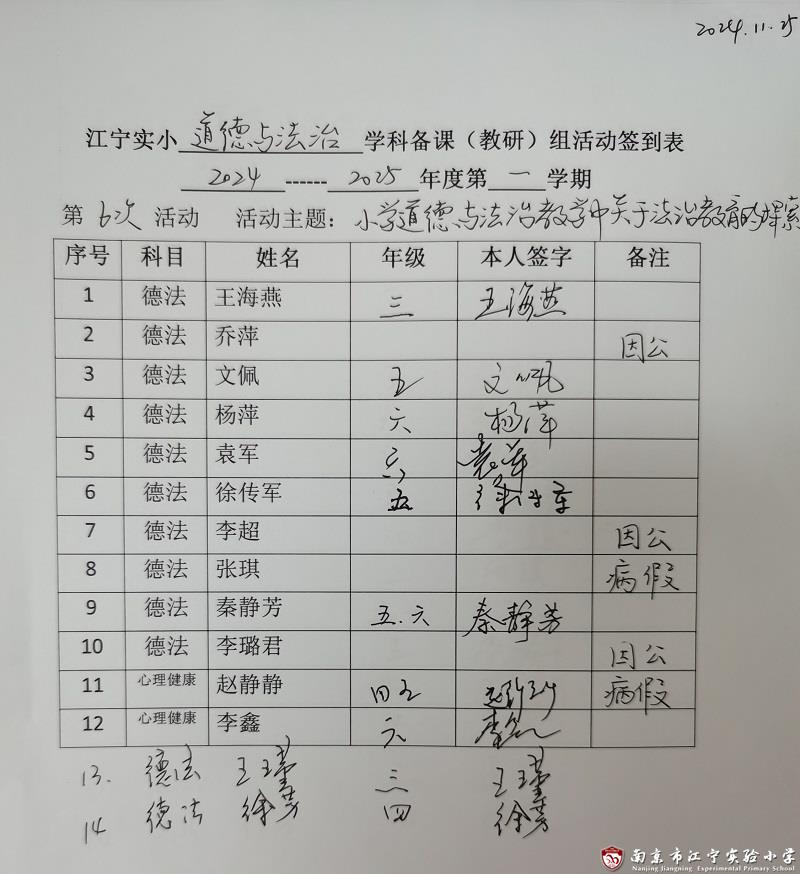 2024.11.25
江宁实小 道德与法治 学科备课（教研）组活动签到表
2024 ------ 2025 年度第 一 学期
第 6次 活动 活动主题：小学道德与法治教学中关于法治教育的探索
序号 科目 姓名 年级 本人签字 备注
1 德法 王海燕 三 王海燕
2 德法 乔萍 因公
3 德法 文佩 五 文佩
4 德法 杨萍 六 杨萍
5 德法 袁军 六 袁军
6 德法 徐传军 五 徐传军
7 德法 李超 因公
8 德法 张琪 病假
9 德法 秦静芳 五.六 秦静芳
10 德法 李璐君 因公
11 心理健康 赵静静 四五 赵静静 病假
12 心理健康 李鑫 六 李鑫
13. 德法 王瑾 三 王瑾
14 德法 徐芳 四 徐芳
南京市江宁实验小学
Nanjing Jiangning Experimental Primary School